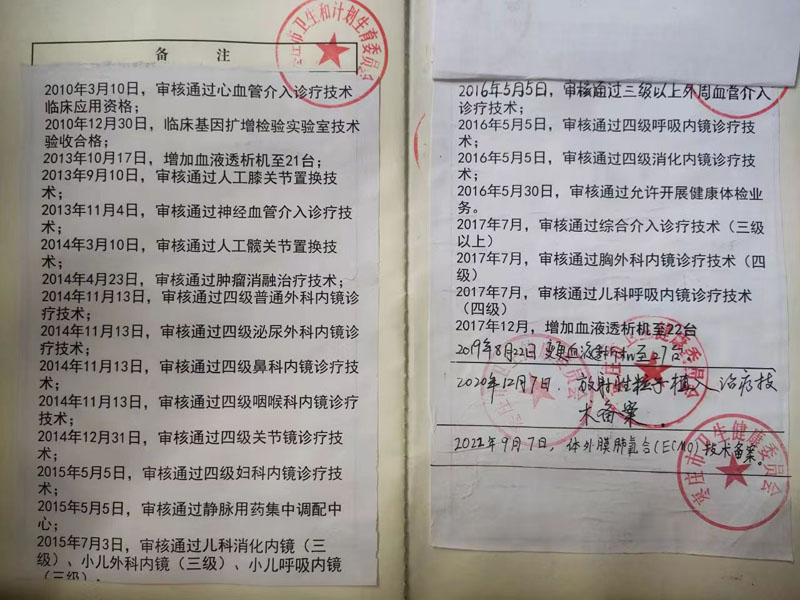 备 注
枣庄市卫生和计划生育委员会
2010年3月10日，审核通过心血管介入诊疗技术
临床应用资格；
2010年12月30日，临床基因扩增检验实验室技术
验收合格；
2013年10月17日，增加血液透析机至21台；
2013年9月10日，审核通过人工膝关节置换技
术；
2013年11月4日，审核通过神经血管介入诊疗技
术；
2014年3月10日，审核通过人工髋关节置换技
术；
2014年4月23日，审核通过肿瘤消融治疗技术；
2014年11月13日，审核通过四级普通外科内镜诊
疗技术；
2014年11月13日，审核通过四级泌尿外科内镜诊
疗技术；
2014年11月13日，审核通过四级鼻科内镜诊疗技
术；
2014年11月13日，审核通过四级咽喉科内镜诊疗
技术；
2014年12月31日，审核通过四级关节镜诊疗技
术；
2015年5月5日，审核通过四级妇科内镜诊疗技
术；
2015年5月5日，审核通过静脉用药集中调配中
心；
2015年7月3日，审核通过儿科消化内镜（三
级）、小儿外科内镜（三级）、小儿呼吸内镜
（三级）；
2016年5月5日，审核通过三级以上外周血管介入
诊疗技术；
2016年5月5日，审核通过四级呼吸内镜诊疗技
术；
2016年5月5日，审核通过四级消化内镜诊疗技
术；
2016年5月30日，审核通过允许开展健康体检业
务。
2017年7月，审核通过综合介入诊疗技术（三级
以上）
2017年7月，审核通过胸外科内镜诊疗技术（四
级）
2017年7月，审核通过儿科呼吸内镜诊疗技术
（四级）
2017年12月，增加血液透析机至22台
2019年8月22日 变更血液透析机至27台
2020年12月7日. 放射性粒子植入治疗技
术备案.
2022年9月7日，体外膜肺氧合(ECMO)技术备案。
枣庄市卫生健康委员会